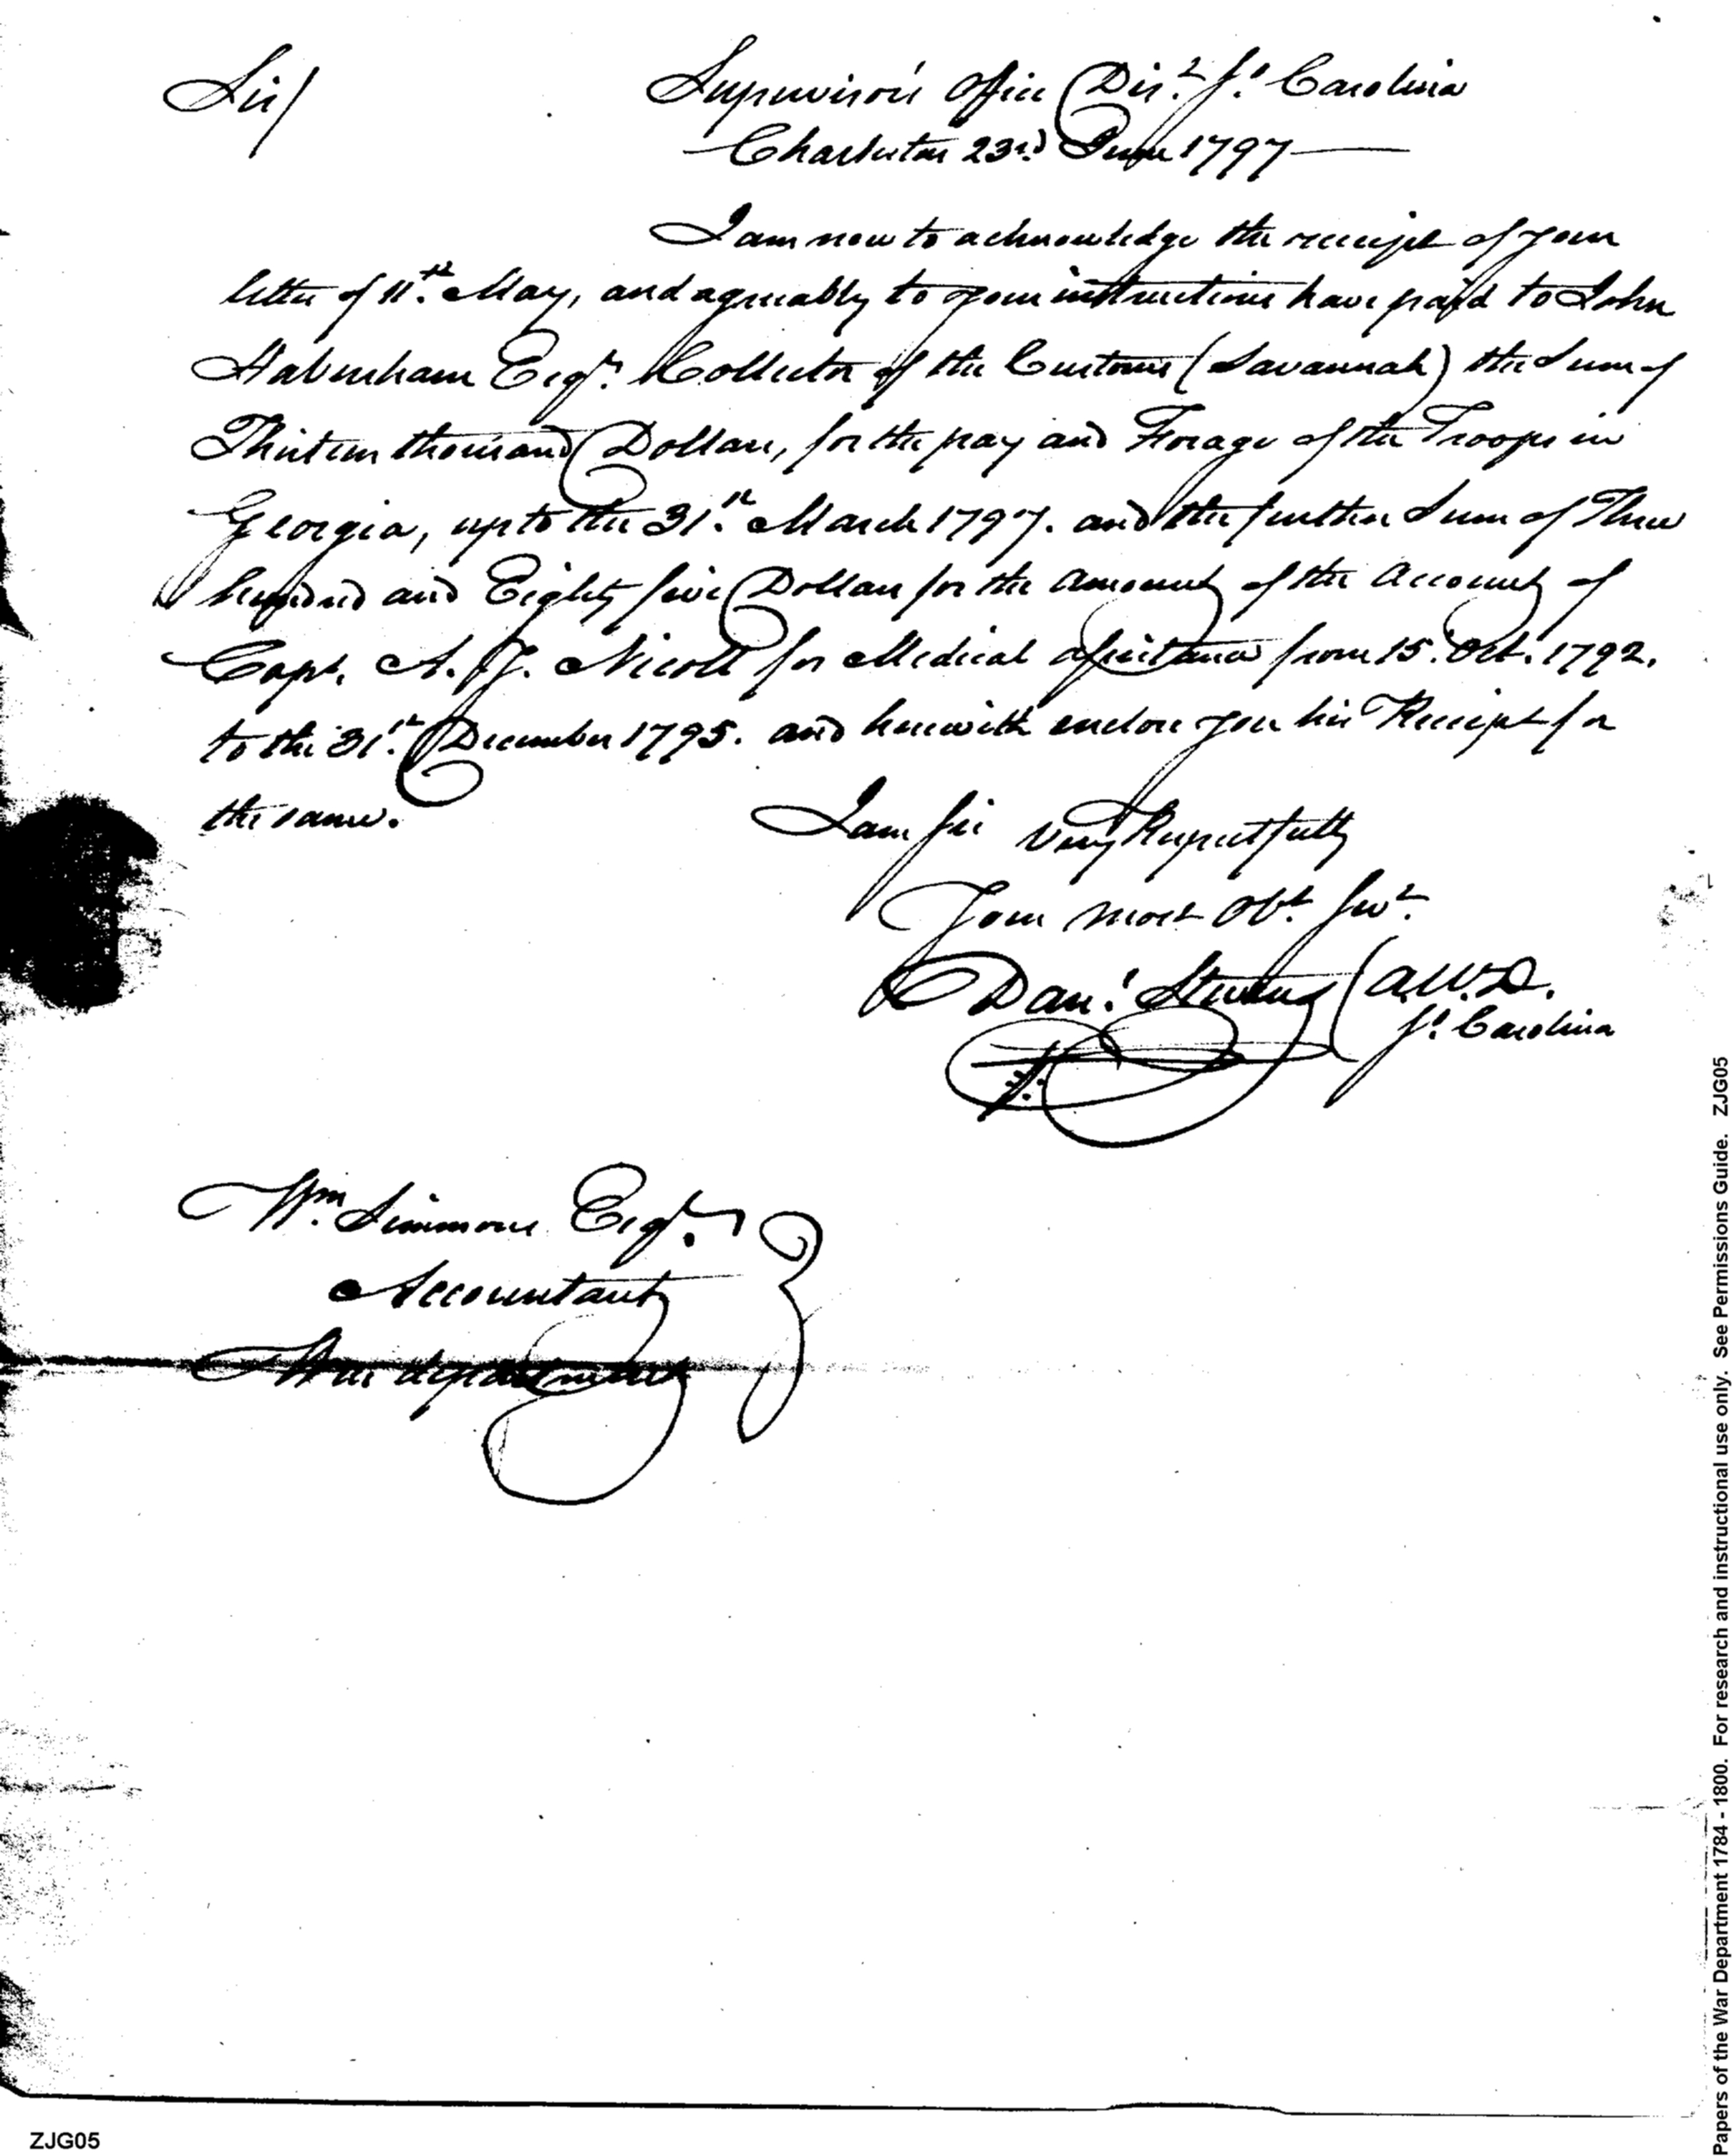 Sir/
Supervisor's Office Dis.t So. Carolina
Charleston 23rd June 1797
I am now to acknowledge the receipt of your
letter of 11th. May, and agreeably to your instructions have paid to John
Habersham Esqr. Collector of the Customs (Savannah) the Sum of
Thirteen thousand Dollars, for the pay and Forage of the Troops in
Georgia, up to the 31st. March 1797. and the further Sum of Three
hundred and Eighty five Dollars for the amount of the Account of
Capt. A. Y. Nicoll for Medical assistance from 15. Oct. 1792.
to the 31st. December 1795. and herewith enclose you his Receipt for
the same.
I am Sir Very Respectfully
Your most Obt. Servt.
Danl. Stevens
So. Carolina
Wm. Simmons Esqr.
Accountant
War department
ZJG05
Papers of the War Department 1784 - 1800. For research and instructional use only. See Permissions Guide. ZJG05